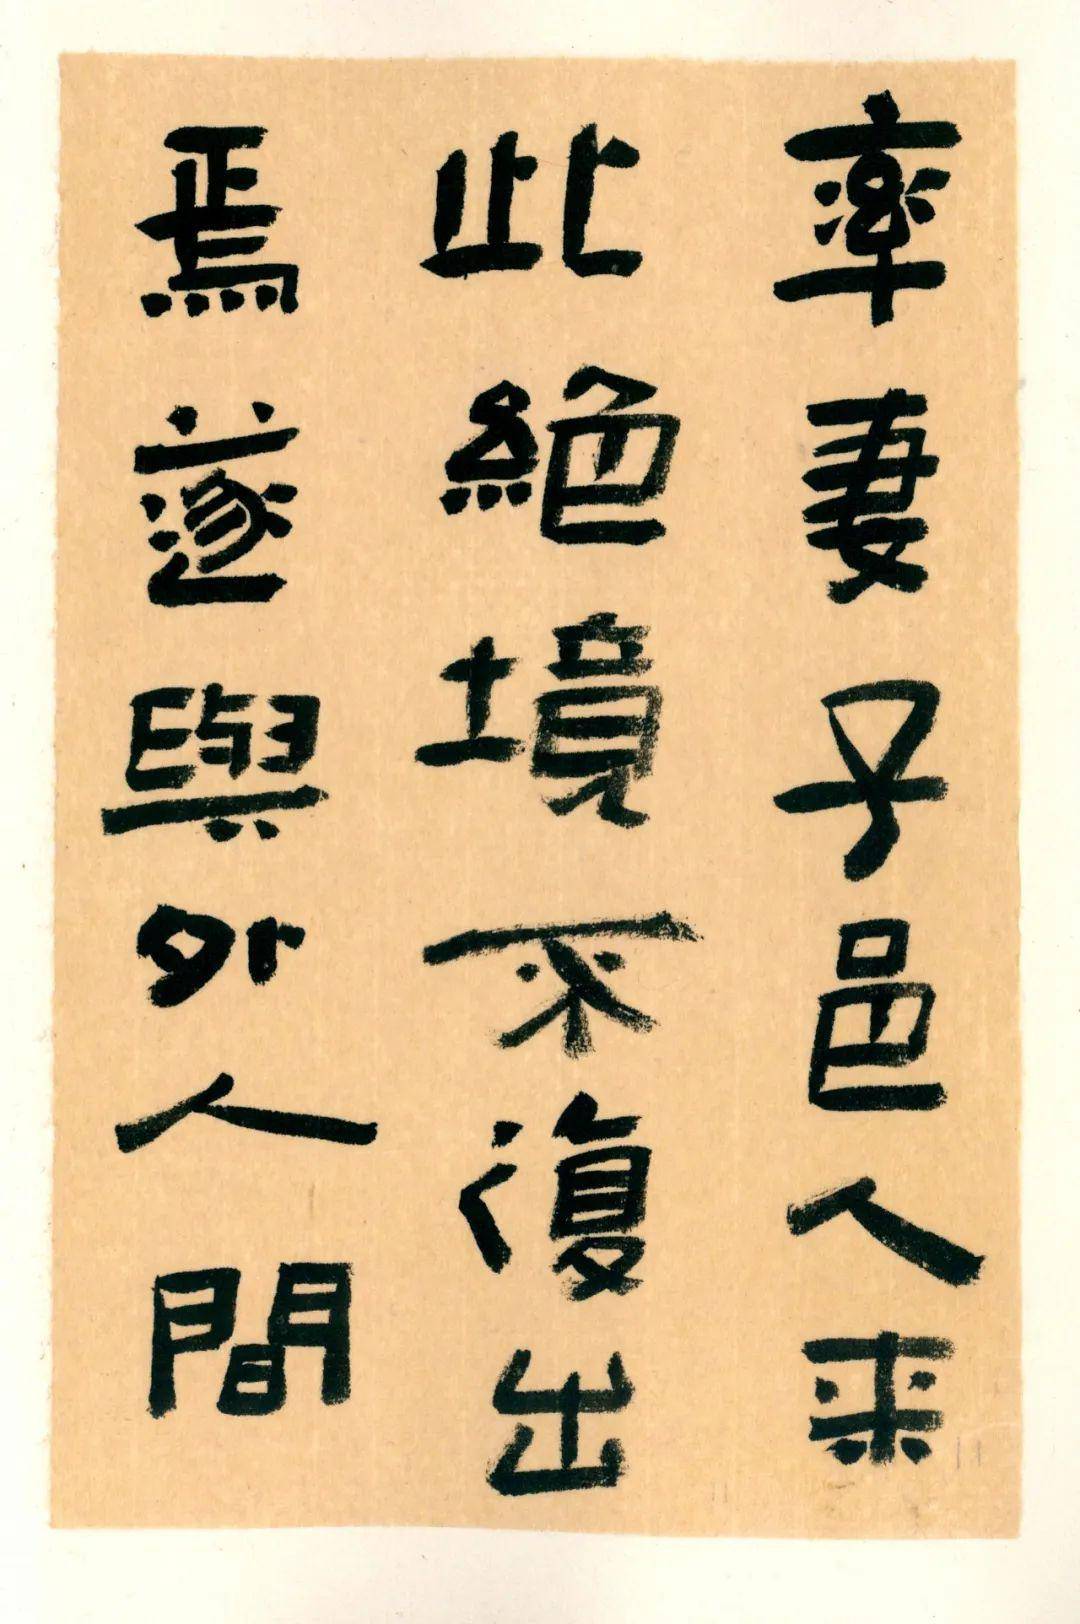 率妻子邑人来
此絕境不復出
焉遂與外人間